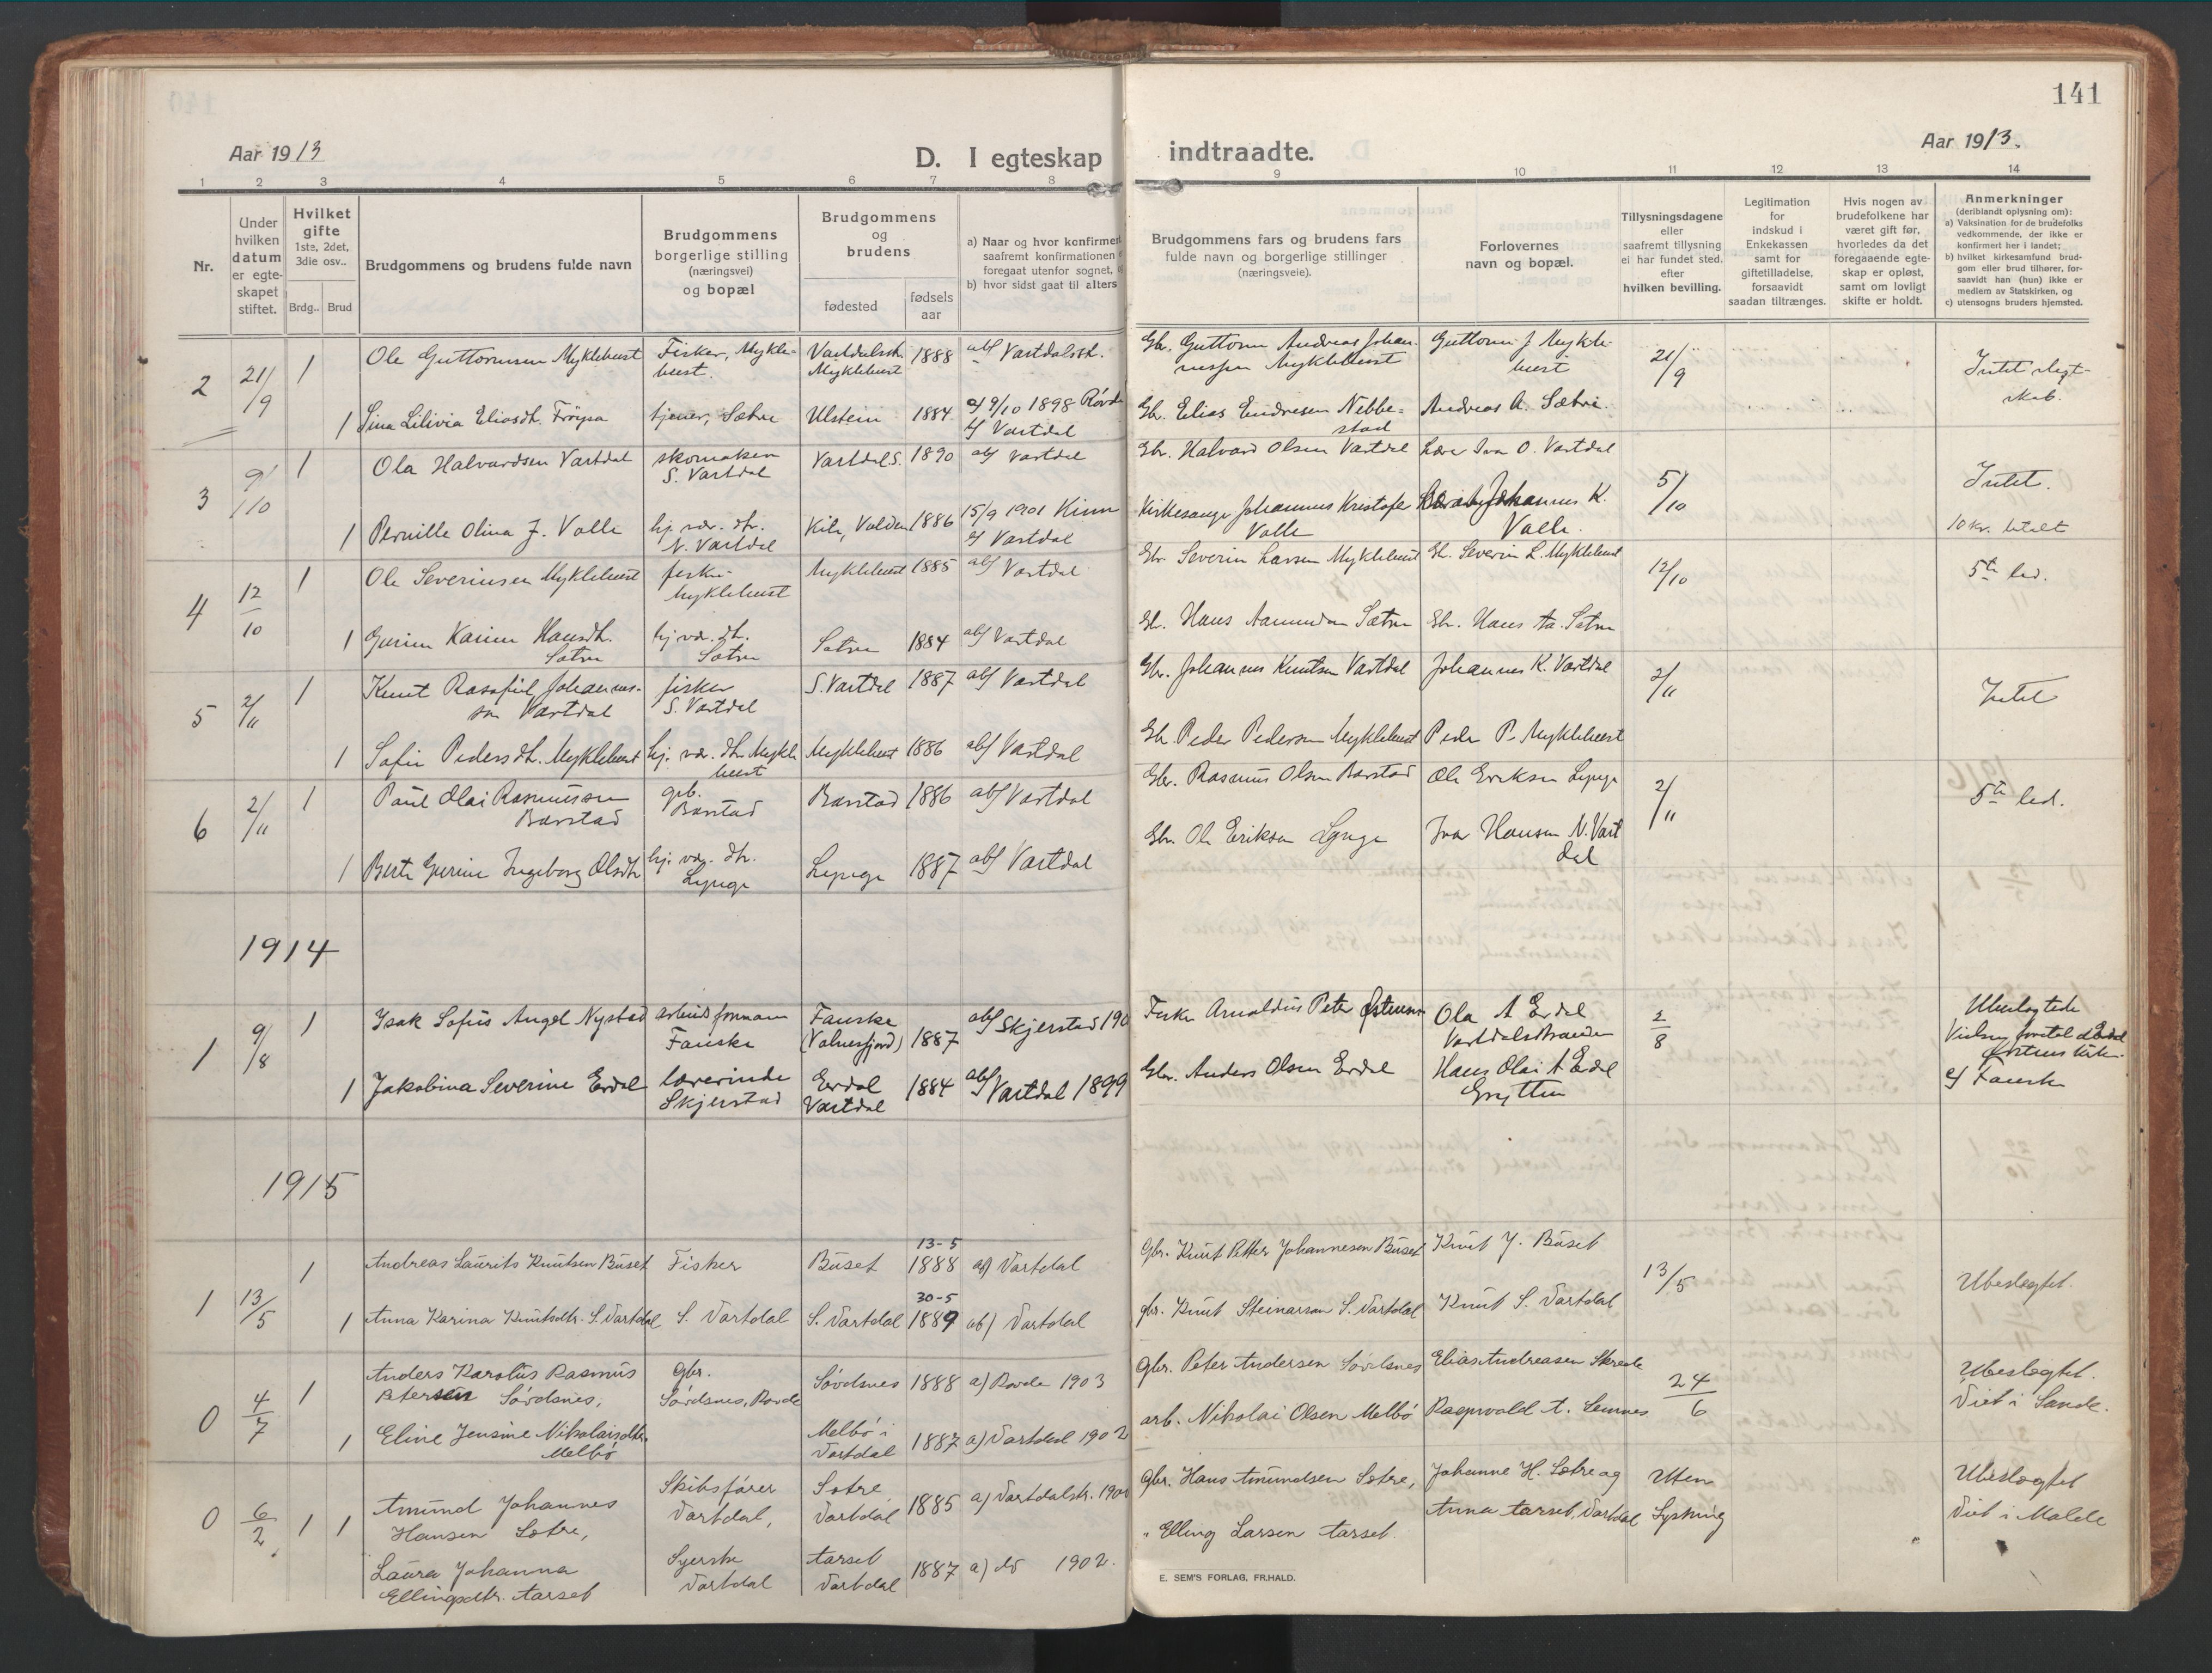 141
Aar 1913
D. I egteskap indtraadte.
Aar 1913.
1 2 3 4 5 6 7 8 9 10 11 12 13 14
Nr.
Under
hvilken
datum
er egte-
skapet
stiftet.
Hvilket
gifte
1ste, 2det,
3die osv..
Brdg.. Brud
Brudgommens og brudens fulde navn
Brudgommens
borgerlige stilling
(næringsvei)
og bopæl
Brudgommens
og
brudens
fødested
fødsels
aar
a) Naar og hvor konfirmert
saafremt konfirmationen
foregaat utenfor sognet,
b) hvor sidst gaat til alters
Brudgommens fars og brudens fars
fulde navn og borgerlige stillinger
(næringsveie).
Forlovernes
navn og bopæl.
Tillysningsdagene
eller
saafremt tillysning
ei har fundet sted,
efter
hvilken bevilling.
Legitimation
for
indskud i
Enkekassen
samt for
giftetilladelse,
forsaavidt
saadan tiltrænges.
Hvis nogen av
brudefolkene har
været gift før,
hvorledes da det
foregaaende egte-
skap er opløst,
samt om lovligt
skifte er holdt.
Anmerkninger
(deriblandt oplysning om):
a) Vaksination for de brudefolks
vedkommende, der ikke er
konfirmert her i landet;
b) hvilket kirkesamfund brud-
gom eller brud tilhører, for-
saavidt han (hun) ikke er
medlem av Statskirken, og
c) utensogns bruders hjemsted.
2 21/9 1 Ole Guttormsen Myklebust Fisker, Mykle-
bust. Vartdalsstr.
Myklebust 1888 ab/ Vartdalsstr. Gbr. Guttorm Andreas Johan-
nessen Myklebust Guttorm J Mykle-
bust 21/9 Intet slegt-
skab.
1 Sina Lilivia Eliasdtr. Frøysa tjener, Sætre Ulstein 1884 a) 9/10 1898 Rovde
b) Vartdal Gbr. Elias Endresen Nebbe-
stad Andreas A. Sætre.
3 9/10 1 Ola Halvardsen Vartdal skomaker
S. Vartdal Vartdal S. 1890 ab/ Vartdal Gbr. Halvard Olsen Vartdal Lærer Ivar O. Vartdal 5/10 Intet.
1 Pernille Olina J. Valle hj. vær. dtr.
N. Vartdal Kile, Volden 1886 15/9 1901 Kinn
b) Vartdal Kirkesanger Johannes Kristofer
Valle Johannes K.
Valle. 10 kr. betalt
4 12/10 1 Ole Severinsen Myklebust fisker
Myklebust Myklebust 1885 ab/ Vartdal Gbr. Severin Larsen Myklebust Gb. Severin L. Myklebust 12/10 5te led.
1 Gurine Karine Hansdtr.
Sætre hj. vær. dtr.
Sætre Sætre 1884 ab/ Vartdal Gbr. Hans Aamundsen Sætre Gbr. Hans Aa. Sætre
5 2/11 1 Knut Rasafiel Johannes-
sen Vartdal fisker
S. Vartdal S. Vartdal 1887 ab/ Vartdal Gbr. Johannes Knutsen Vartdal Johannes K. Vartdal 2/11 Intet
1 Sofie Pedersdtr. Myklebust hj. vær. dtr. Mykle
bust Myklebust 1886 ab/ Vartdal Gbr. Peder Pedersen Myklebust Peder P. Myklebust
6 2/11 1 Paul Olai Rasmussen
Barstad gb.
Barstad Barstad 1886 ab/ Vartdal Gbr. Rasmus Olsen Barstad Ole Eriksen Lynge 2/11 5te led.
1 Berte Gurine Ingeborg Olsdtr hj. vær. dtr.
Lynge Lynge 1887 ab/ Vartdal Gbr. Ole Eriksen Lynge Ivar Hansen N. Vart
dal
1914
1 9/8 1 Isak Sofus Angel Nystad arbeidsformann
Fauske Fauske
(Valnesfjord) 1887 ab/ Skjerstad 190 Fisker Arnoldus Peter Ola A Erdal
Vartdalsstranden 2/8 Ubeslegtede
1 Jakobina Severine Erdal lærerinde
Skjerstad Erdal
Vartdal 1884 ab/ Vartdal 1899 Gbr. Anders Olsen Erdal Hans Olai A Erdal
Grytten c) Fauske
1915
1 13/5 1 Andreas Laurits Knutsen Buset Fisker Buset 13-5
1888 ab) Vartdal Gbr. Knut Petter Johannesen Buset Knut J. Buset 13/5 Ubeslegtet.
1 Anna Karina Knutsdtr. S. Vartdal S. Vartdal S. Vartdal 30-5
1889 ab) Vartdal gbr. Knut Steinarson S. Vartdal Knut S. Vartdal
0 4/7 1 Anders Karolus Rasmus
Petersen Sövdsnes, Gbr.
Sövdsnes, Rovde Sövdsnes 1888 a) Rovde 1903 Gbr. Peter Andersen Sövdsnes Elias Andreasen Skrede 24/6 Ubeslegtet.
Viet i Sande.
1 Eline Jensine Nikolaisdtr.
Melbö Melbö i
Vartdal 1887 a) Vartdal 1902 arb. Nikolai Olsen Melbö Ragnvald A. Lennes
0 6/2 1 1 Amund Johannes
Hansen Sætre, Skibsfører
Vartdal, Sætre
Vartdal 1885 a) Vartdalstr. 1900 Gbr. Hans Amundsen Sætre, Johanne H. Sætre og
Anna Aarset, Vartdal Uten
Lysning Ubeslegtet
Viet i Molde
Laura Johanna
Ellingsdtr. Aarset Syerske
Vartdal Aarset
Vartdal 1887 a) do 1902. " Elling Larsen Aarset.
E. SEM'S FORLAG, FR.HALD.